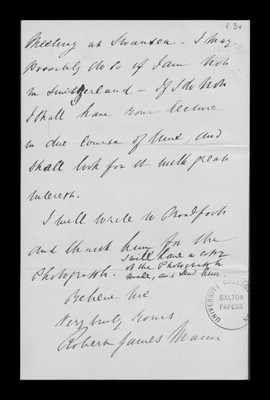 9.3v
Meeting at Swansea – I may
possibly do so if I am not
in Switzerland – If I do not
I shall have your lecture
in due course of time, and
shall look for it with great
interest.
I will write to Proudfoot
and thank him for the
Photograph. I will have a copy
of the Photograph
made, and send him.
Believe me
Very truly yours
Robert James Mann
UNIVERSITY COLLEGE
GALTON
PAPERS